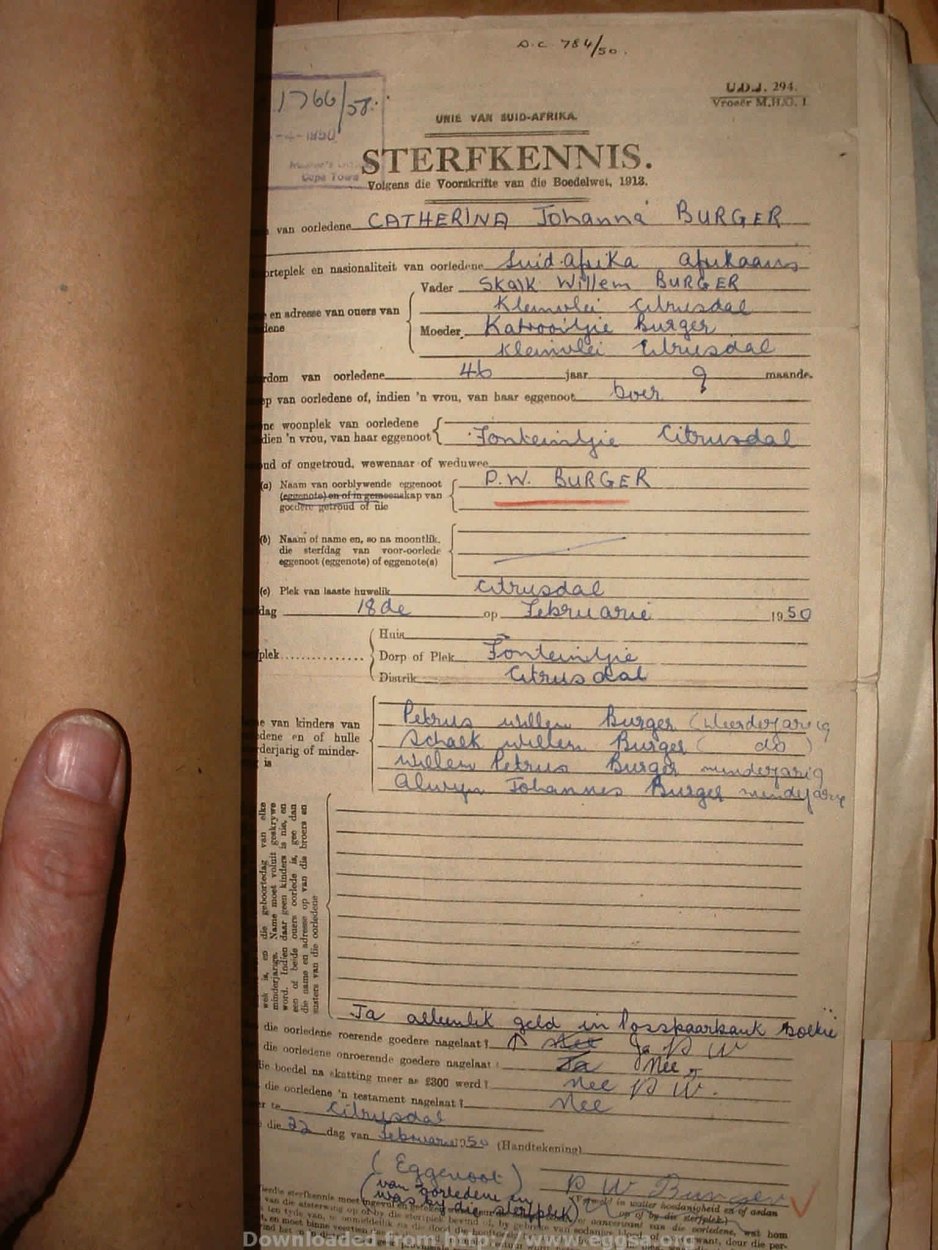 D.C. 784/50.
1766/50.
-4-1950
Cape Town
U.D.J. 294.
Vroeër M.H.G. 1
UNIE VAN SUID-AFRIKA.
STERFKENNIS.
Volgens die Voorskrifte van die Boedelwet, 1913.
van oorledene CATHERINA Johanna BURGER
orteplek en nasionaliteit van oorledene Suid-Afrika Afrikaans
en adresse van ouers van
dene
Vader Skalk Willem BURGER
Kleinvlei Citrusdal
Moeder Katrooitjie Burger
Kleinvlei Citrusdal
rdom van oorledene 46 jaar 9 maande.
ep van oorledene of, indien 'n vrou, van haar eggenoot boer
ne woonplek van oorledene
dien 'n vrou, van haar eggenoot Fonteintjie Citrusdal
oud of ongetroud, wewenaar of weduwee
(a) Naam van oorblywende eggenoot
(eggenote) en of in gemeenskap van
goedere getroud of nie
P.W. BURGER
(b) Naam of name en, so na moontlik,
die sterfdag van voor-oorlede
eggenoot (eggenote) of eggenote(s)
(c) Plek van laaste huwelik Citrusdal
dag 18de op Februarie 1950
plek
Huis
Dorp of Plek Fonteintjie
Distrik Citrusdal
e van kinders van
dene en of hulle
rderjarig of minder-
is
Petrus Willem Burger (Meerderjarig
Schalk Willem Burger ( do )
Willem Petrus Burger minderjarig
Alwyn Johannes Burger minderjarig
wek is, en die geboortedag van elke
minderjarige. Name moet voluit geskrywe
word. Indien daar geen kinders is nie, en
een of beide ouers oorlede is, gee dan
die name en adresse op van die broers en
susters van die oorledene
Ja alleenlik geld in Posspaarbank boekie
die oorledene roerende goedere nagelaat? Ja P W
die oorledene onroerende goedere nagelaat? Ja Nee
die boedel na skatting meer as £300 werd? Nee P.W.
die oorledene 'n testament nagelaat? Nee
er te Citrusdal
die 22 dag van Februarie 1950 (Handtekening)
(Eggenoot)
P W Burger
(van oorledene en
was by die sterfplek)
(Vermeld in watter hoedanigheid en of aedan
op of by die sterfplek.)
Downloaded from http://www.eggsa.org